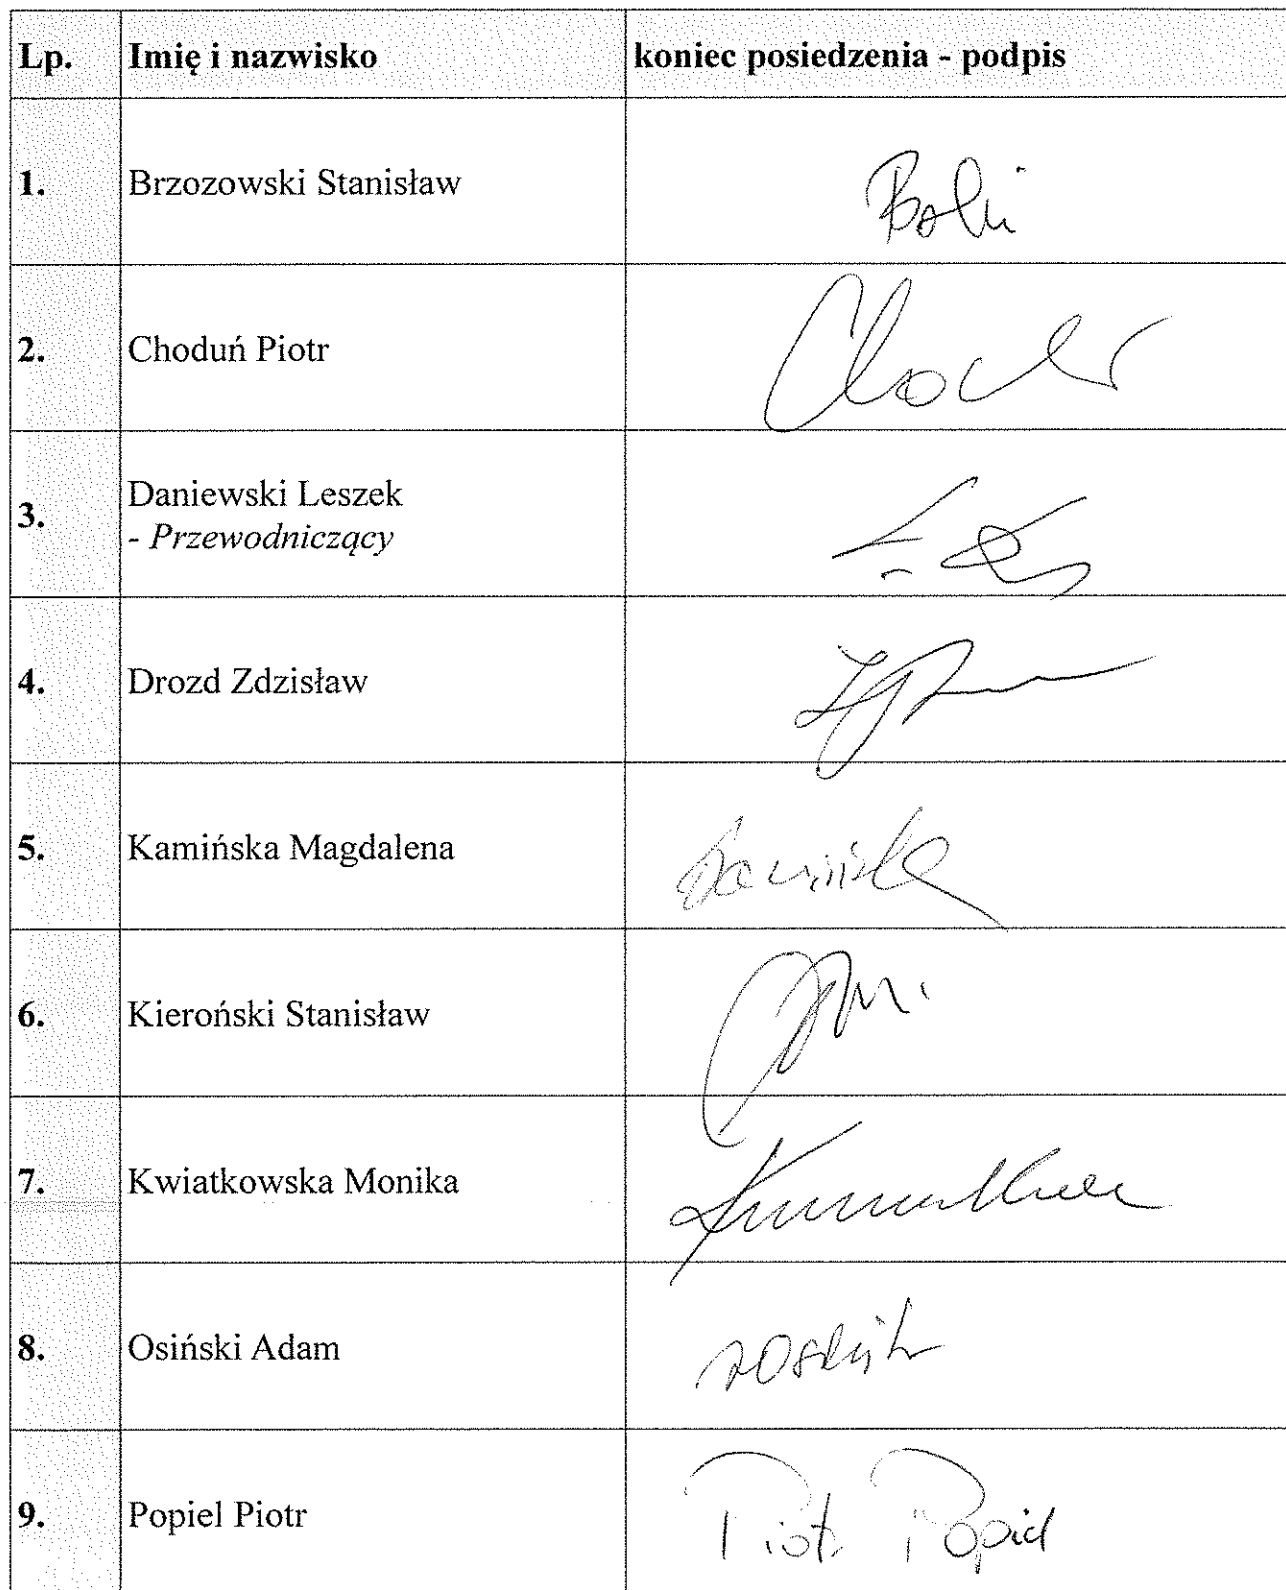 Lp. Imię i nazwisko koniec posiedzenia - podpis
1. Brzozowski Stanisław
2. Choduń Piotr
3. Daniewski Leszek
- Przewodniczący
4. Drozd Zdzisław
5. Kamińska Magdalena
6. Kieroński Stanisław
7. Kwiatkowska Monika
8. Osiński Adam
9. Popiel Piotr Piotr Popiel